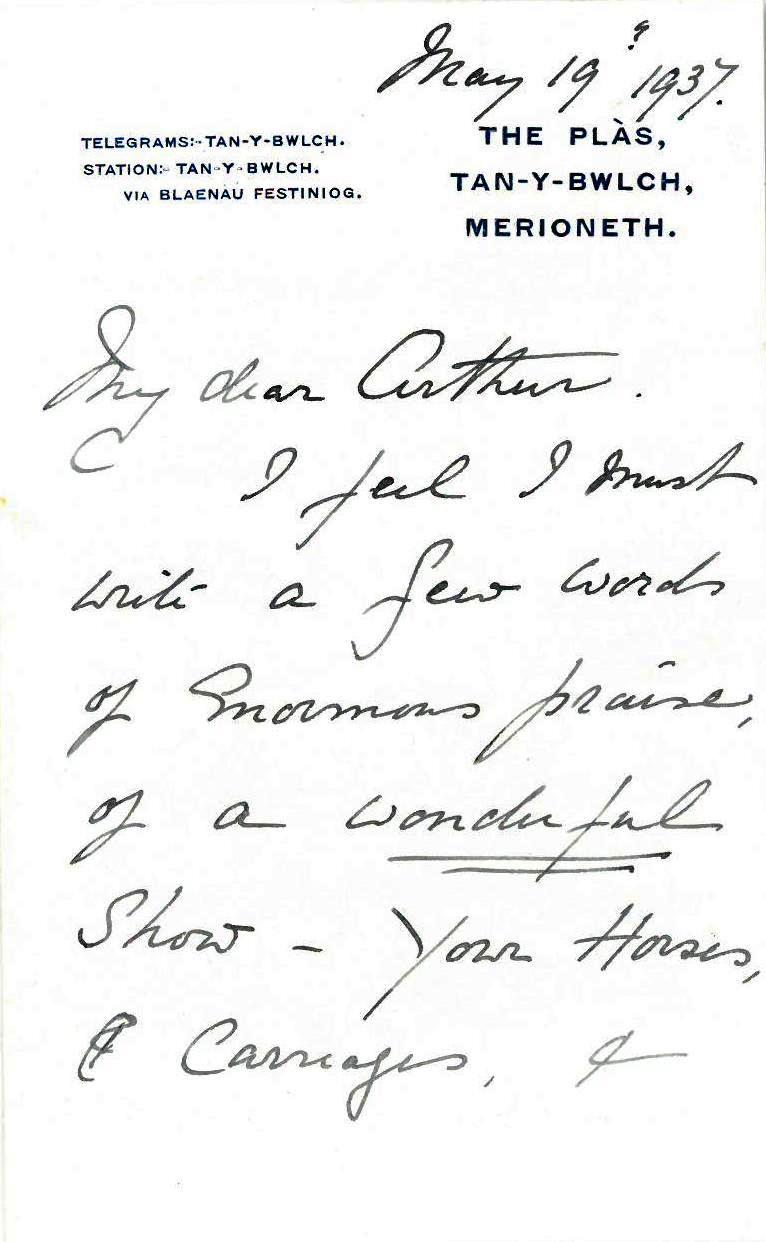 May 19 1937.
TELEGRAMS:- TAN-Y-BWLCH.
STATION:- TAN-Y-BWLCH.
VIA BLAENAU FESTINIOG.
THE PLÀS,
TAN-Y-BWLCH,
MERIONETH.
My dear Arthur.
I feel I must
write a few words
of Enormous praise,
of a wonderful
Show - Your Horses,
& Carriages, &